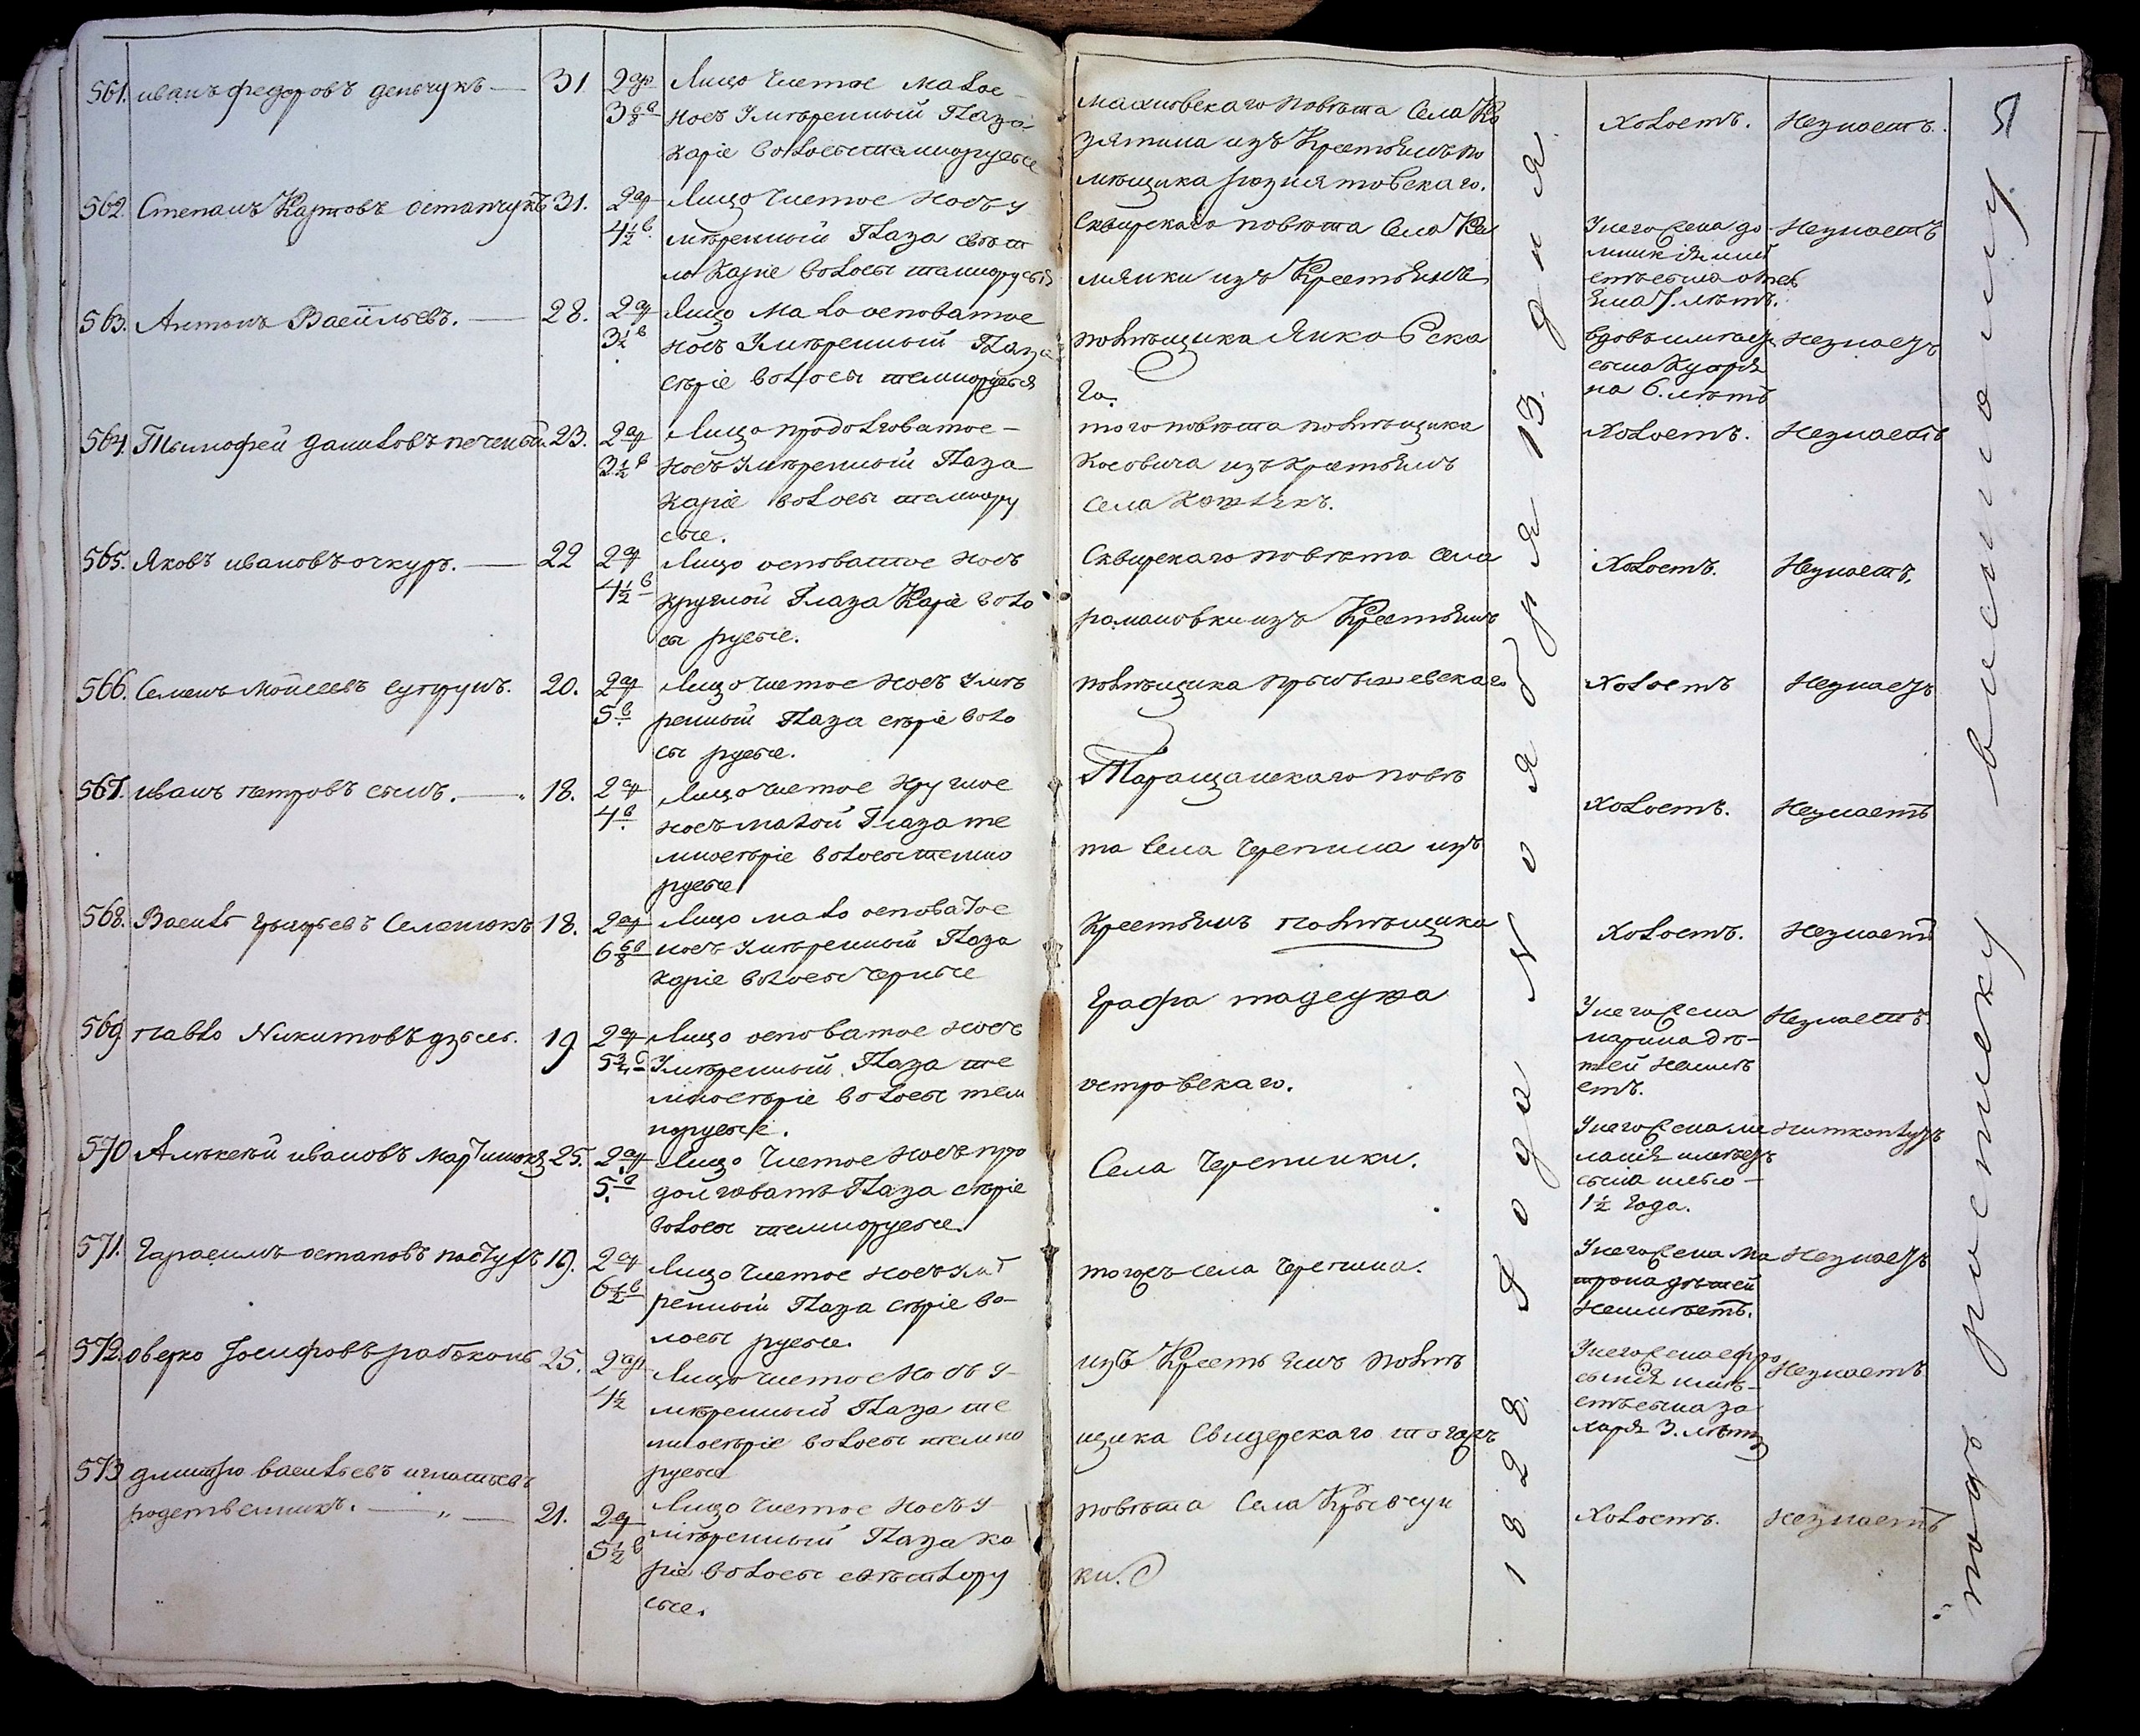 561. иванъ федоровъ денчукъ — 31. 2 ар 3 6/8 в Лицо Чистое Малое
носъ Умѣренный Глаза
Каріе Волосы темнорусые
562. Степанъ Карповъ остапчукъ 31. 2 ар 4 1/2 в Лицо Чистое Носъ У
мѣренный Глаза свѣт
ло Каріе Волосы темнорусыя
563. Антонъ Васильевъ. — 28. 2 ар 3 1/2 в Лицо Мало осповатое
носъ Умѣренный Глаза
сѣріе Волосы темнорусыя
564. Тымофей даниловъ 23. 2 ар 3 1/2 в Лицо продолговатое —
носъ Умѣренный Глаза
Каріе волосы темнору
сые.
565. Яковъ ивановъ очкуръ. — 22 2 ар 4 1/2 в Лицо осповатое Носъ
круглой Глаза Каріе Воло
сы русые.
566. Семенъ Мойсеевъ супрунъ. 20. 2 ар 5 в Лицо чистое Носъ Умѣ
ренный Глаза сѣріе Воло
сы русые.
567. иванъ петровъ сынъ. — 18. 2 ар 4 в Лицо чистое Круглое
носъ малой Глаза те
мносѣріе волосы темно
русые
568. Василь Семенюкъ 18. 2 ар 6 6/8 в Лицо мало осповатое
носъ Умѣренный Глаза
Каріе волосы черные
569. павло Никитовъ 19 2 ар 5 3/4 в Лицо осповатое Носъ
Умѣренный Глаза те
мносѣріе волосы тем
норусые.
570 Алѣксѣй ивановъ Мартинюкъ 25. 2 ар 5. в Лицо Чистое Носъ про
долговатъ Глаза сѣріе
волосы темнорусые.
571. Гарасимъ остаповъ пастухъ 19. 2 ар 6 1/2 в Лицо Чистое Носъ Умѣ
ренный Глаза сѣріе во-
лосы русые.
572. оверко Іосифовъ рабоконь 25. 2 ар 4 1/2 Лицо чистое Носъ У-
мѣренный Глаза те
мносѣріе волосы темно
русые
573 дмитро васильевъ игнатьевъ
родственникъ. — „ — 21. 2 ар 5 1/2 в Лицо чистое Носъ У-
мѣренный Глаза ка
ріе волосы свѣтлору
сые.
Махновскаго повѣта Села Ко
зятина изъ Крестьянъ по
мѣщика
Сквирскаго повѣта Села Ка
мянки изъ Крестьянъ
помѣщика Янковска
го.
того повѣта помѣщика
Косовича изъ крестьянъ
села
Сквирскаго повѣта села
романовки изъ Крестьянъ
помѣщика
Таращанскаго повѣ
та Села Черепина изъ
Крестьянъ помѣщика
Графа тадеуша
островскаго.
Села Черепинки.
тогожъ села Черепина.
изъ Крестьянъ помѣ
щика Свидерскаго тогожъ
повѣта Села Крывчун
ки.
1828 Года Ноября 13. дня
Холостъ. Незнаетъ.
Унего Жена до
миникія имѣ
етъ сына
7. лѣтъ. Незнаетъ
вдовъ имѣетъ
сына
на 6. лѣтъ Незнаетъ
Холостъ. Незнаетъ
Холостъ. Незнаетъ.
Холостъ Незнаетъ
Холостъ. Незнаетъ
Холостъ. Незнаетъ
Унего Жена
марина дѣ-
тей Неимѣ
етъ. Незнаетъ.
Унего Жена ме
ланія имѣетъ
сына илью —
1 1/2 Года.
Унего Жена Ма
трона дѣтей
Неимѣетъ. Незнаетъ
Унего Жена ефро
сынія имѣ-
етъ сына за
харя 3. лѣтъ Незнаетъ
Холостъ. Незнаетъ
подъ росписку
5